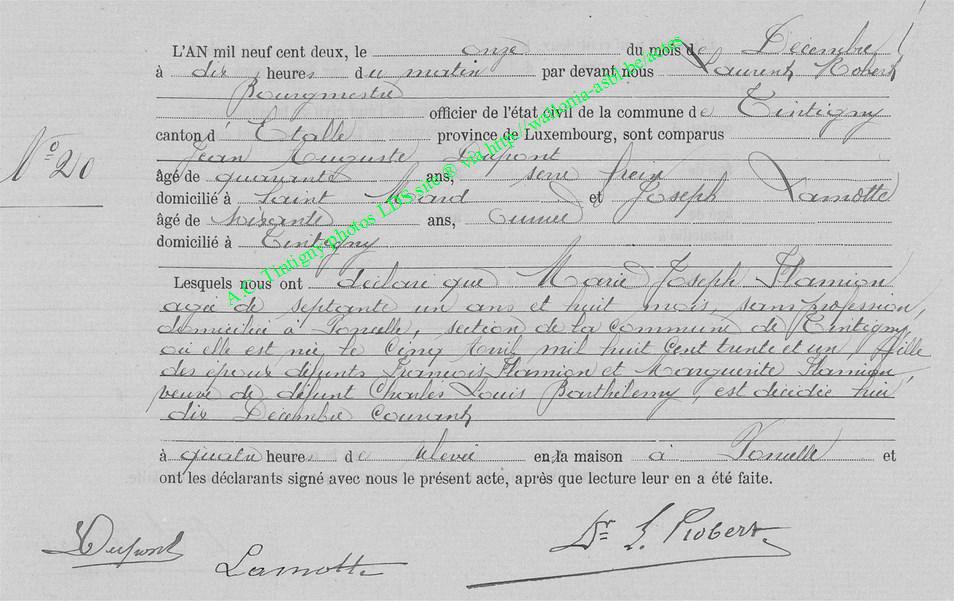 L'AN mil neuf cent deux, le onze du mois de Décembre
à dix heures du matin par devant nous Laurent Robert
Bourgmestre
officier de l'état civil de la commune de Tintigny
canton d' Etalle province de Luxembourg, sont comparus
Jean Auguste Dupont
N° 20
âgé de quarante ans, serre frein
domicilié à Saint Mard et Joseph Lamotte
âgé de soixante ans,
domicilié à Tintigny
Lesquels nous ont déclaré que Marie Joseph Flamion
agée de septante un ans et huit mois, sans profession,
domiciliée à Poncelle, section de la commune de Tintigny,
où elle est née le cinq Avril mil huit cent trente et un, fille
des époux défunts François Flamion et Marguerite Flamion,
veuve de défunt Charles Louis Barthélemy, est décédée hier
dix Décembre courant
à quatre heures de relevée en la maison à Poncelle et
ont les déclarants signé avec nous le présent acte, après que lecture leur en a été faite.
Dupont
Lamotte
Dr L. Robert
A.C. Tintigny photos LDS site ® via http://wallonia-asbl.be/actes